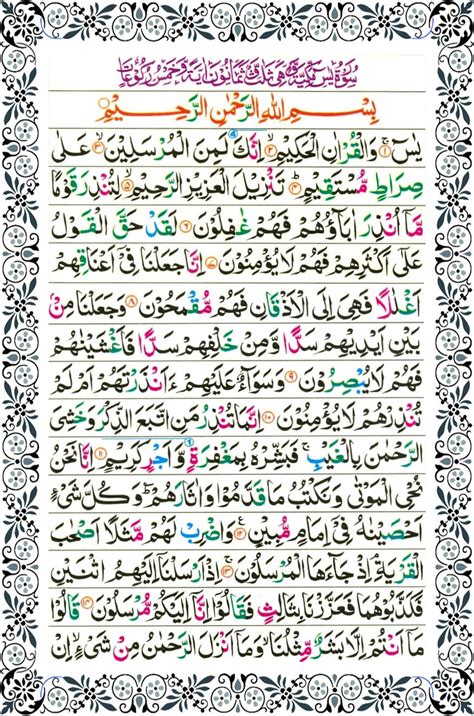 سُوْرَةُ يٰسٓ مَكِّيَّةٌ وَّهِيَ ثَلٰثٌ وَّثَمَانُوْنَ اٰيَةً وَّخَمْسُ رُكُوْعَاتٍ
بِسْمِ اللّٰهِ الرَّحْمٰنِ الرَّحِيْمِ
يٰسٓ ۝١ وَالْقُرْاٰنِ الْحَكِيْمِ ۝٢ اِنَّكَ لَمِنَ الْمُرْسَلِيْنَ ۝٣ عَلٰى
صِرَاطٍ مُّسْتَقِيْمٍ ۝٤ تَنْزِيْلَ الْعَزِيْزِ الرَّحِيْمِ ۝٥ لِتُنْذِرَ قَوْمًا
مَّاۤ اُنْذِرَ اٰبَآؤُهُمْ فَهُمْ غٰفِلُوْنَ ۝٦ لَقَدْ حَقَّ الْقَوْلُ
عَلٰۤى اَكْثَرِهِمْ فَهُمْ لَا يُؤْمِنُوْنَ ۝٧ اِنَّا جَعَلْنَا فِيْۤ اَعْنَاقِهِمْ
اَغْلٰلًا فَهِيَ اِلَى الْاَذْقَانِ فَهُمْ مُّقْمَحُوْنَ ۝٨ وَجَعَلْنَا مِنْۢ
بَيْنِ اَيْدِيْهِمْ سَدًّا وَّمِنْ خَلْفِهِمْ سَدًّا فَاَغْشَيْنٰهُمْ
فَهُمْ لَا يُبْصِرُوْنَ ۝٩ وَسَوَآءٌ عَلَيْهِمْ ءَاَنْذَرْتَهُمْ اَمْ لَمْ
تُنْذِرْهُمْ لَا يُؤْمِنُوْنَ ۝١٠ اِنَّمَا تُنْذِرُ مَنِ اتَّبَعَ الذِّكْرَ وَخَشِيَ
الرَّحْمٰنَ بِالْغَيْبِ ۚ فَبَشِّرْهُ بِمَغْفِرَةٍ وَّاَجْرٍ كَرِيْمٍ ۝١١ اِنَّا نَحْنُ
نُحْيِ الْمَوْتٰى وَنَكْتُبُ مَا قَدَّمُوْا وَاٰثَارَهُمْ ؕ وَكُلَّ شَيْءٍ
اَحْصَيْنٰهُ فِيْۤ اِمَامٍ مُّبِيْنٍ ۝١٢ وَاضْرِبْ لَهُمْ مَّثَلًا اَصْحٰبَ
الْقَرْيَةِ ۘ اِذْ جَآءَهَا الْمُرْسَلُوْنَ ۝١٣ اِذْ اَرْسَلْنَاۤ اِلَيْهِمُ اثْنَيْنِ
فَكَذَّبُوْهُمَا فَعَزَّزْنَا بِثَالِثٍ فَقَالُوْۤا اِنَّاۤ اِلَيْكُمْ مُّرْسَلُوْنَ ۝١٤ قَالُوْا
مَاۤ اَنْتُمْ اِلَّا بَشَرٌ مِّثْلُنَا ۙ وَمَاۤ اَنْزَلَ الرَّحْمٰنُ مِنْ شَيْءٍ ۙ اِنْ